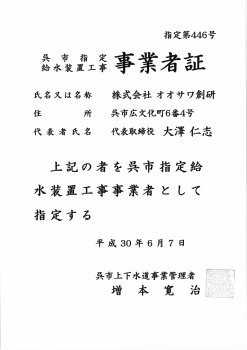 指定第446号
呉市指定給水装置工事 事業者証
氏名又は名称 株式会社 オオサワ創研
住所 呉市広文化町6番4号
代表者氏名 代表取締役 大澤 仁志
上記の者を呉市指定給
水装置工事事業者として
指定する
平成30年6月7日
呉市上下水道事業管理者
増本寛治